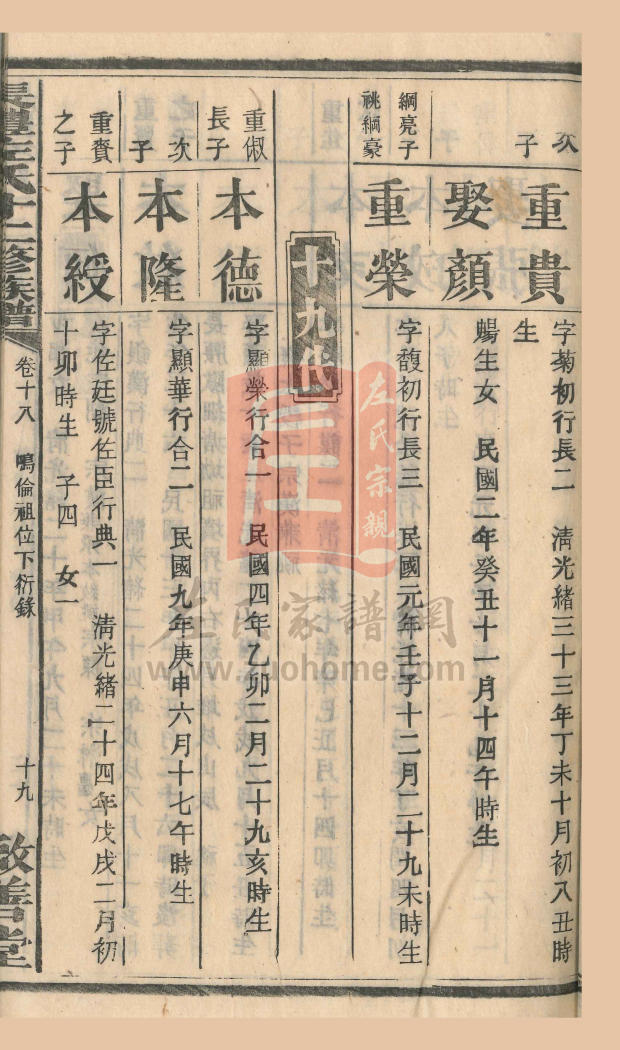 次子
重貴
字菊初行長二 清光緒三十三年丁未十月初八丑時
生
娶顏
暘生女 民國二年癸丑十一月十四午時生
綱亮子
祧綱豪
重榮
字馥初行長三 民國元年壬子十二月二十九未時生
十九代
重俶
長子
本德
字顯榮行合一 民國四年乙卯二月二十九亥時生
次子
本隆
字顯華行合二 民國九年庚申六月十七午時生
重賚
之子
本綬
字佐廷號佐臣行典一 清光緒二十四年戊戌二月初
十卯時生 子四 女一
左氏十二修族譜
卷十八 鳴倫祖位下衍錄
十九
敬善堂
左氏宗親
左氏家譜網
www.zuohome.com